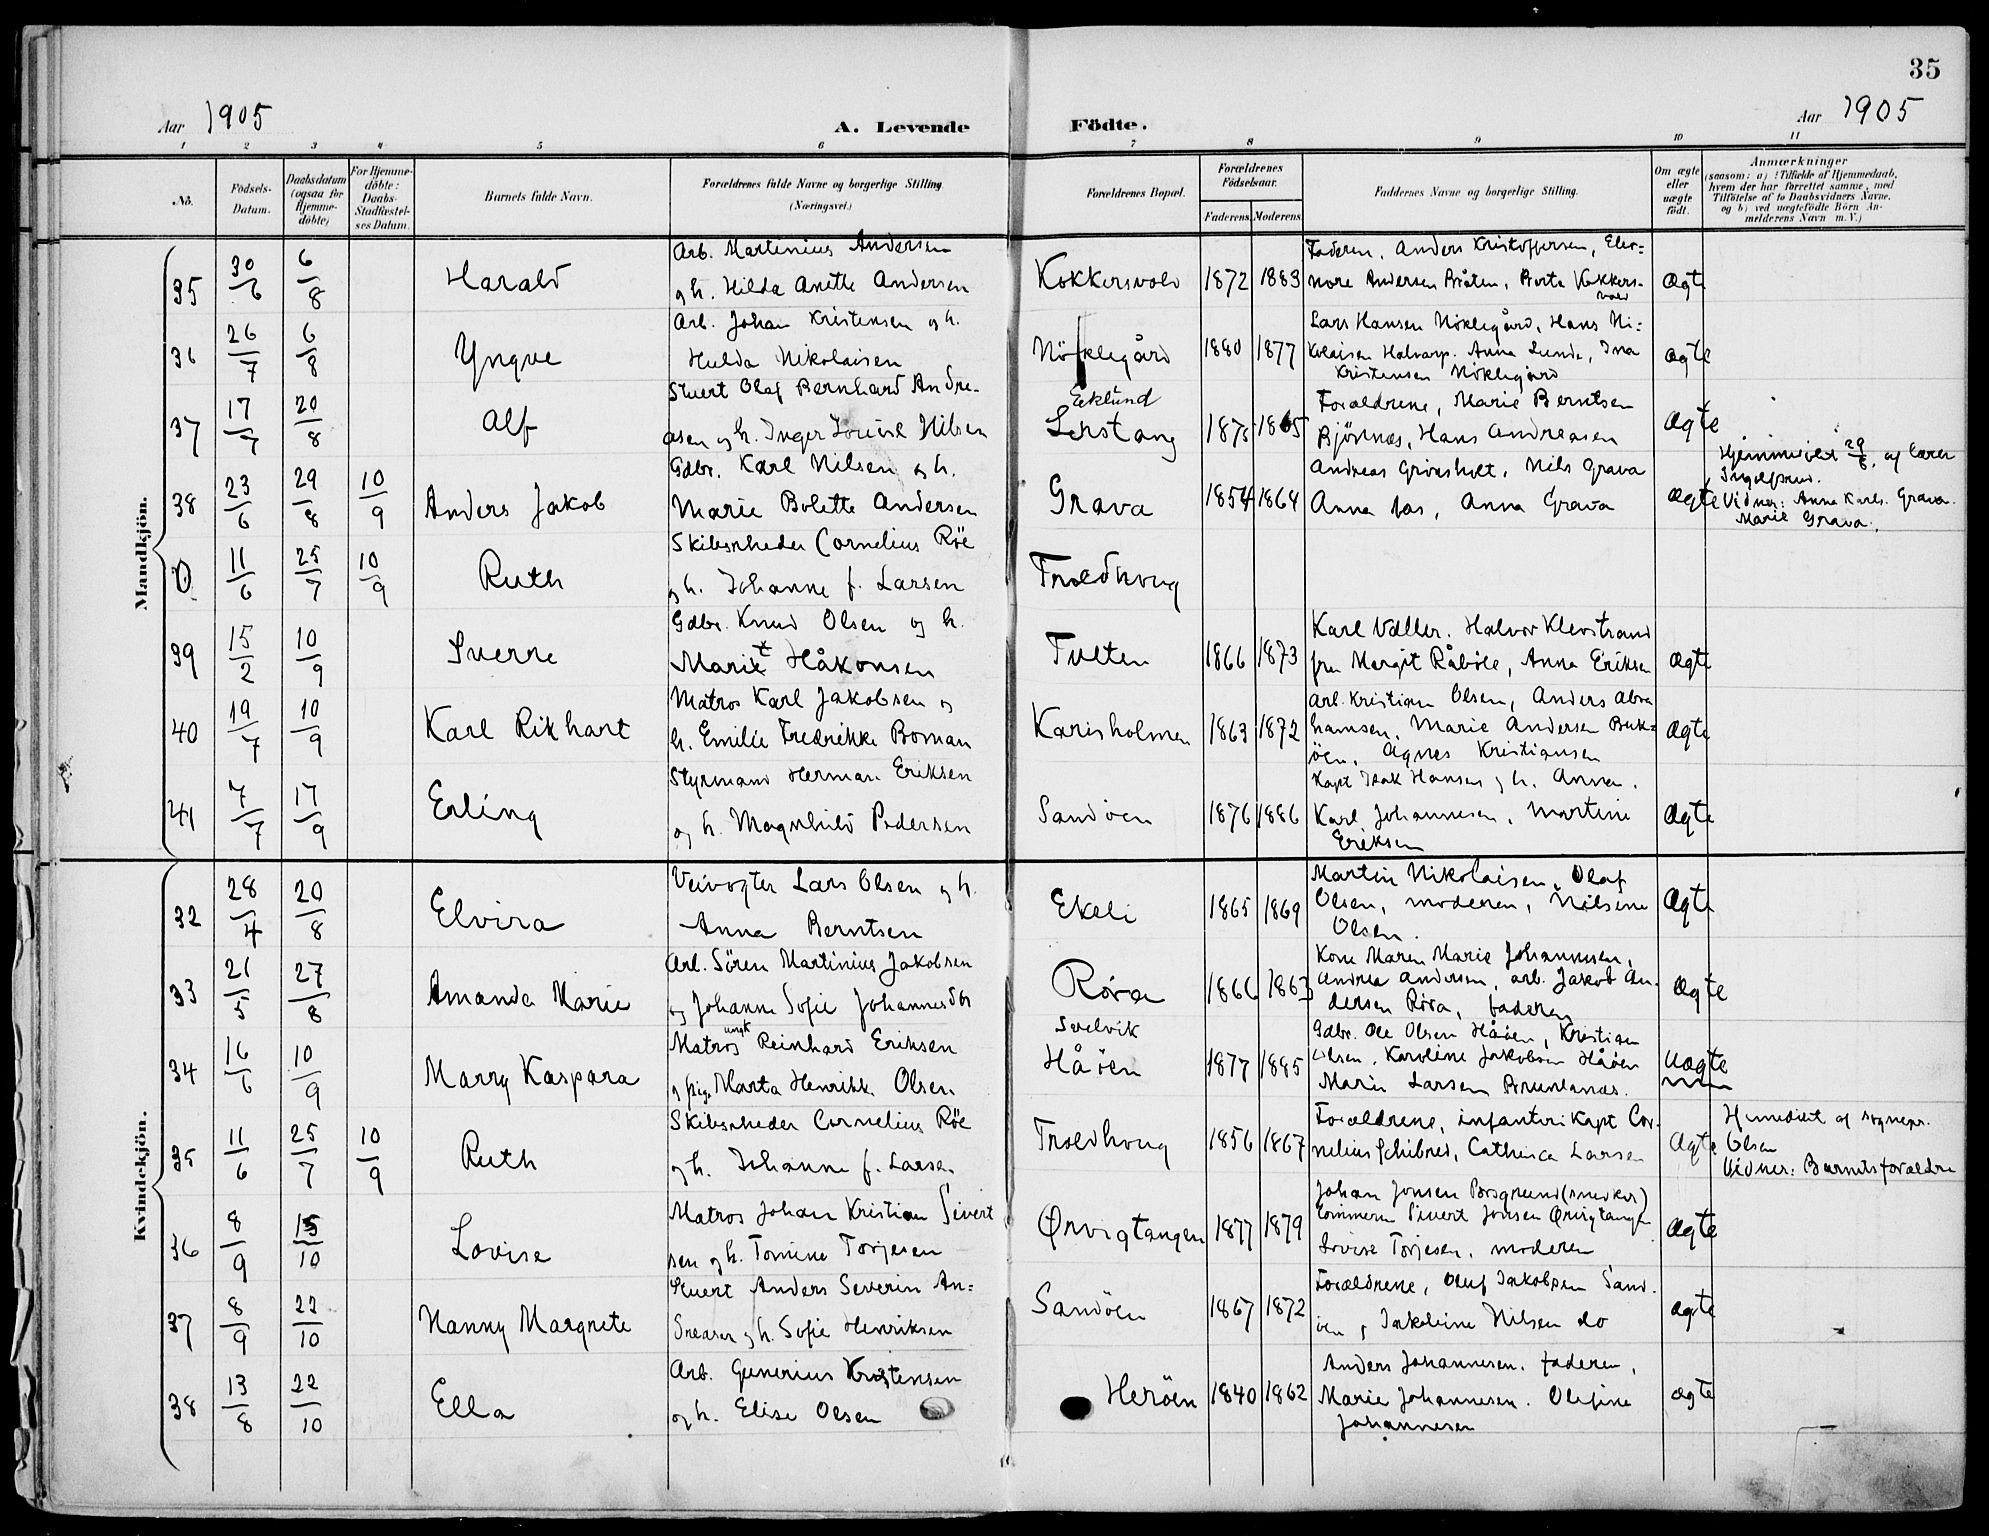 35
Aar 1905
A. Levende Födte.
Aar 1905
1 2 3 4 5 6 7 8 9 10 11
No.
Födsels-Datum.
Daabsdatum (ogsaa for Hjemme-döbte)
For Hjemme-döbte: Daabs-Stadfæstel-ses Datum.
Barnets fulde Navn.
Forældrenes fulde Navne og borgerlige Stilling. (Næringsvei.)
Forældrenes Bopæl.
Forældrenes Födselsaar.
Faderens Moderens
Faddernes Navne og borgerlige Stilling.
Om ægte eller uægte født.
Anmærkninger
(saasom: a) i Tilfælde af Hjemmedaab,
hvem der har forrettet samme, med
Tilföielse af to Daabsvidners Navne,
og b) ved uægtefödte Börn An-
melderens Navn m. V.)
Mandkjön.
35 30/6 6/8 Harald
Arb. Martinius Andersen
og h. Hilda Anette Andersen
Kokkersvold 1872 1883
Faderen, Anders Kristoffersen, Eleo-
nore Andersen Bråten, Berta Kokkers-
vold
ægte
36 26/7 6/8 Yngve
Arb. Johan Kristensen og h.
Hulda Nikolaisen
Nöklegård 1880 1877
Lars Hansen Nöklegård, Hans Ni-
kolaisen Halvarp. Anna Lunde, Ina
Kristensen Nöklegård
ægte
37 17/7 20/8 Alf
Stuert Olaf Bernhard Andre-
asen og h. Inger Lovise Nilsen
Eeklund
Lerstang 1875 1865
Forældrene, Marie Berntsen
Björnnes, Hans Andreasen
ægte
38 23/6 29/8 10/9 Anders Jakob
Gdbr. Karl Nilsen og h.
Marie Bolette Andersen
Grava 1854 1864
Andreas Grönsholt, Nils Grava
Anna Aas, Anna Grava
ægte
Hjemmedöbt 29/8 af lærer
Vidner: Anna Karls. Grava.
Marie Grava.
0 11/6 25/7 10/9 Ruth
Skibsrheder Cornelius Röe
og h. Johanne f. Larsen
Troldhoug
39 15/2 10/9 Sverre
Gdbr. Knud Olsen og h.
Marit Håkonsen
Tveten 1866 1873
Karl Valler. Halvor Klevstrand
fru Margit Råböle, Anna Eriksen
ægte
40 19/7 10/9 Karl Rikhart
Matros Karl Jakobsen og
h. Emilie Fredrikke Boman
Karisholmen 1863 1872
Arb. Kristian Olsen, Anders Abra
hamsen, Marie Andersen Buk-
öen, Agnes Kristiansen
ægte
41 7/7 17/9 Erling
Styrmand Herman Eriksen
og h. Magnhild Pedersen
Sandöen 1876 1886
Kapt Isak Hansen og h. Anna.
Karl Johannesen, Martine
Eriksen
ægte
Kvindekjön.
32 28/4 20/8 Elvira
Veivogter Lars Olsen og h.
Anna Berntsen
Ekeli 1865 1869
Martin Nikolaisen, Olaf
Olsen, moderen, Nilsine
Olsen.
ægte
33 21/5 27/8 Amanda Marie
Arb. Sören Martinius Jakobsen
og Johanne Sofie Johannesdtr
Röra 1866 1863
Kone Maren Marie Johannesen,
Andrea Andersen, arb. Jakob An-
dersen Röra, faderen
ægte
34 16/6 10/9 Marry Kaspara
ungk
Matros Reinhard Eriksen
og pige Marta Henrikke Olsen
Svelvik
Håöen 1877 1885
Gdbr. Ole Olsen Håöen, Kristian
Olsen, Karoline Jakobsen Håöen
Marie Larsen Brunlanæs.
uægte
35 11/6 25/7 10/9 Ruth
Skibsrheder Cornelius Röe
og h. Johanne f. Larsen
Troldhoug 1856 1867
Forældrene, infanterikapt Cor-
nelius Schibred, Cathinca Larsen
ægte
Hjmedöbt af sognepr.
Olsen
Vidner: Barnets forældre
36 8/9 15/10 Lovise
Matros Johan Kristian Sivert
sen og h. Tomine Torjesen
Ørvigtangen 1877 1879
Johan Jonsen Porsgrund (snedker)
tömmerm Sivert Jonsen Ørvigtangen
Lovise Torjesen, moderen
ægte
37 8/9 22/10 Nanny Margrete
Stuert Anders Severin An-
dreasen og h. Sofie Henriksen
Sandöen 1867 1872
Forældrene, Oluf Jakobsen Sand-
öen, Jakobine Nilsen do
ægte
38 13/8 22/10 Ella
Arb. Gunerius Kristensen
og h. Elise Olsen
Heröen 1840 1862
Anders Johannesen, faderen,
Marie Johannesen. Olefine
Johannesen
ægte